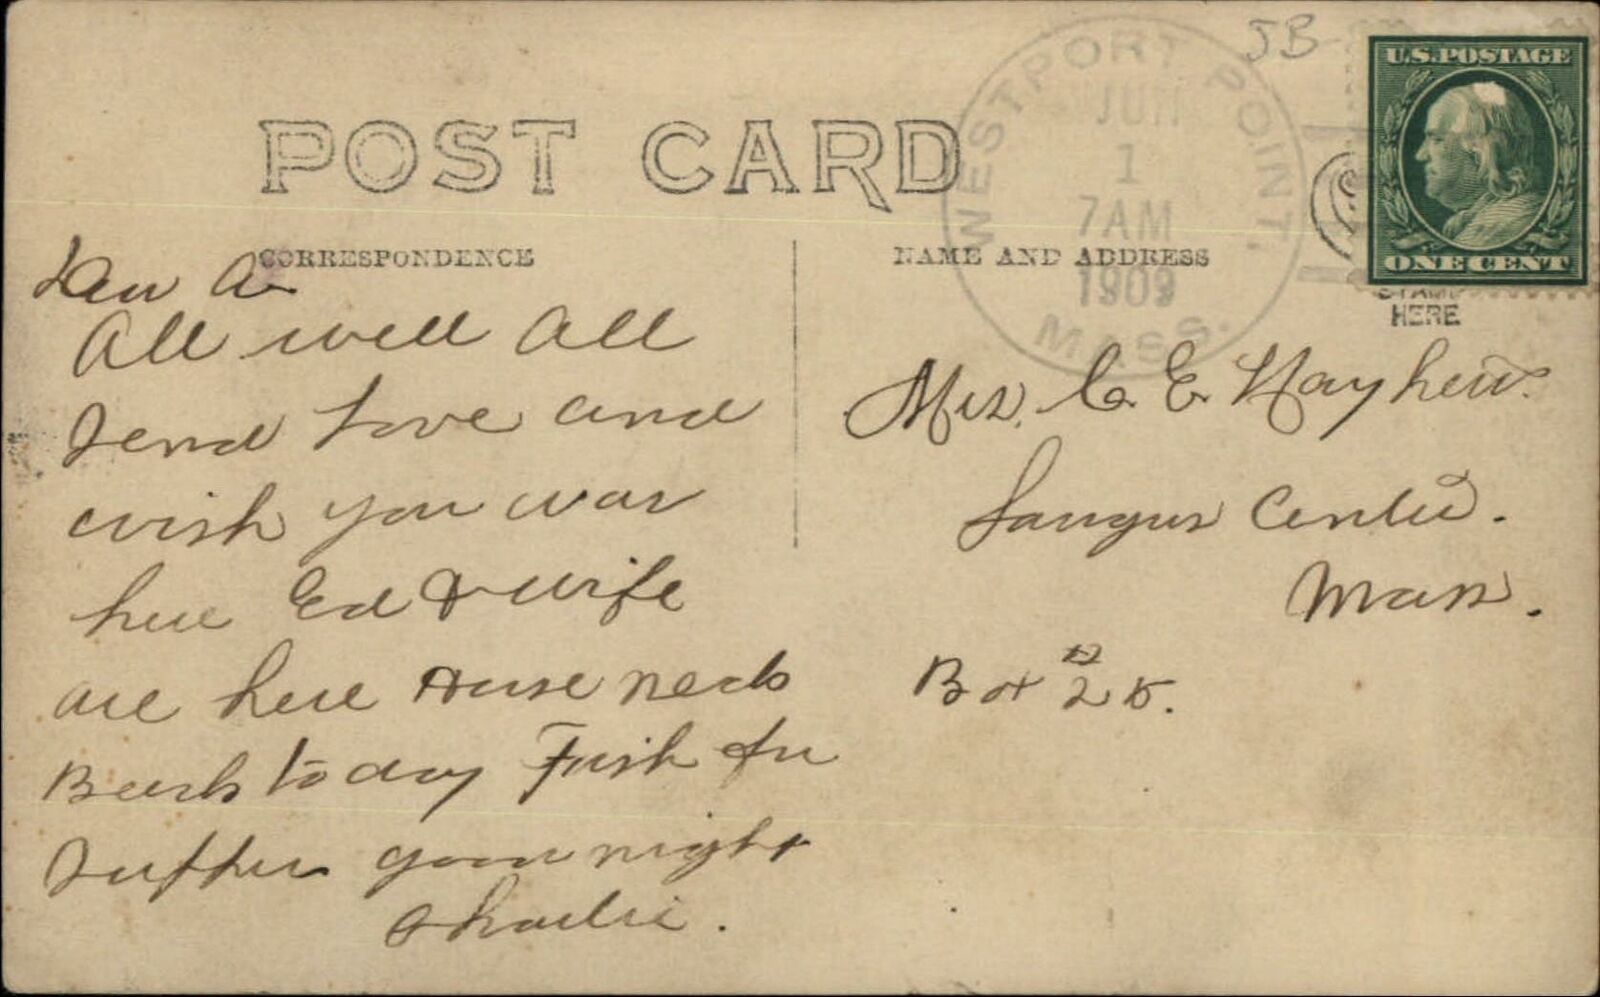 JB
U.S. POSTAGE
ONE CENT
HERE
WESTPORT POINT,
JUN
1
7AM
1909
MASS.
POST CARD
CORRESPONDENCE
NAME AND ADDRESS
All well All
Send Love and
wish you war
here Ed & wife
are here Horse neck
Beach to day Fish for
Supper good night
Charlie.
Mrs. C. E. Mayhew.
Saugus Center.
Mass.
Box 25.